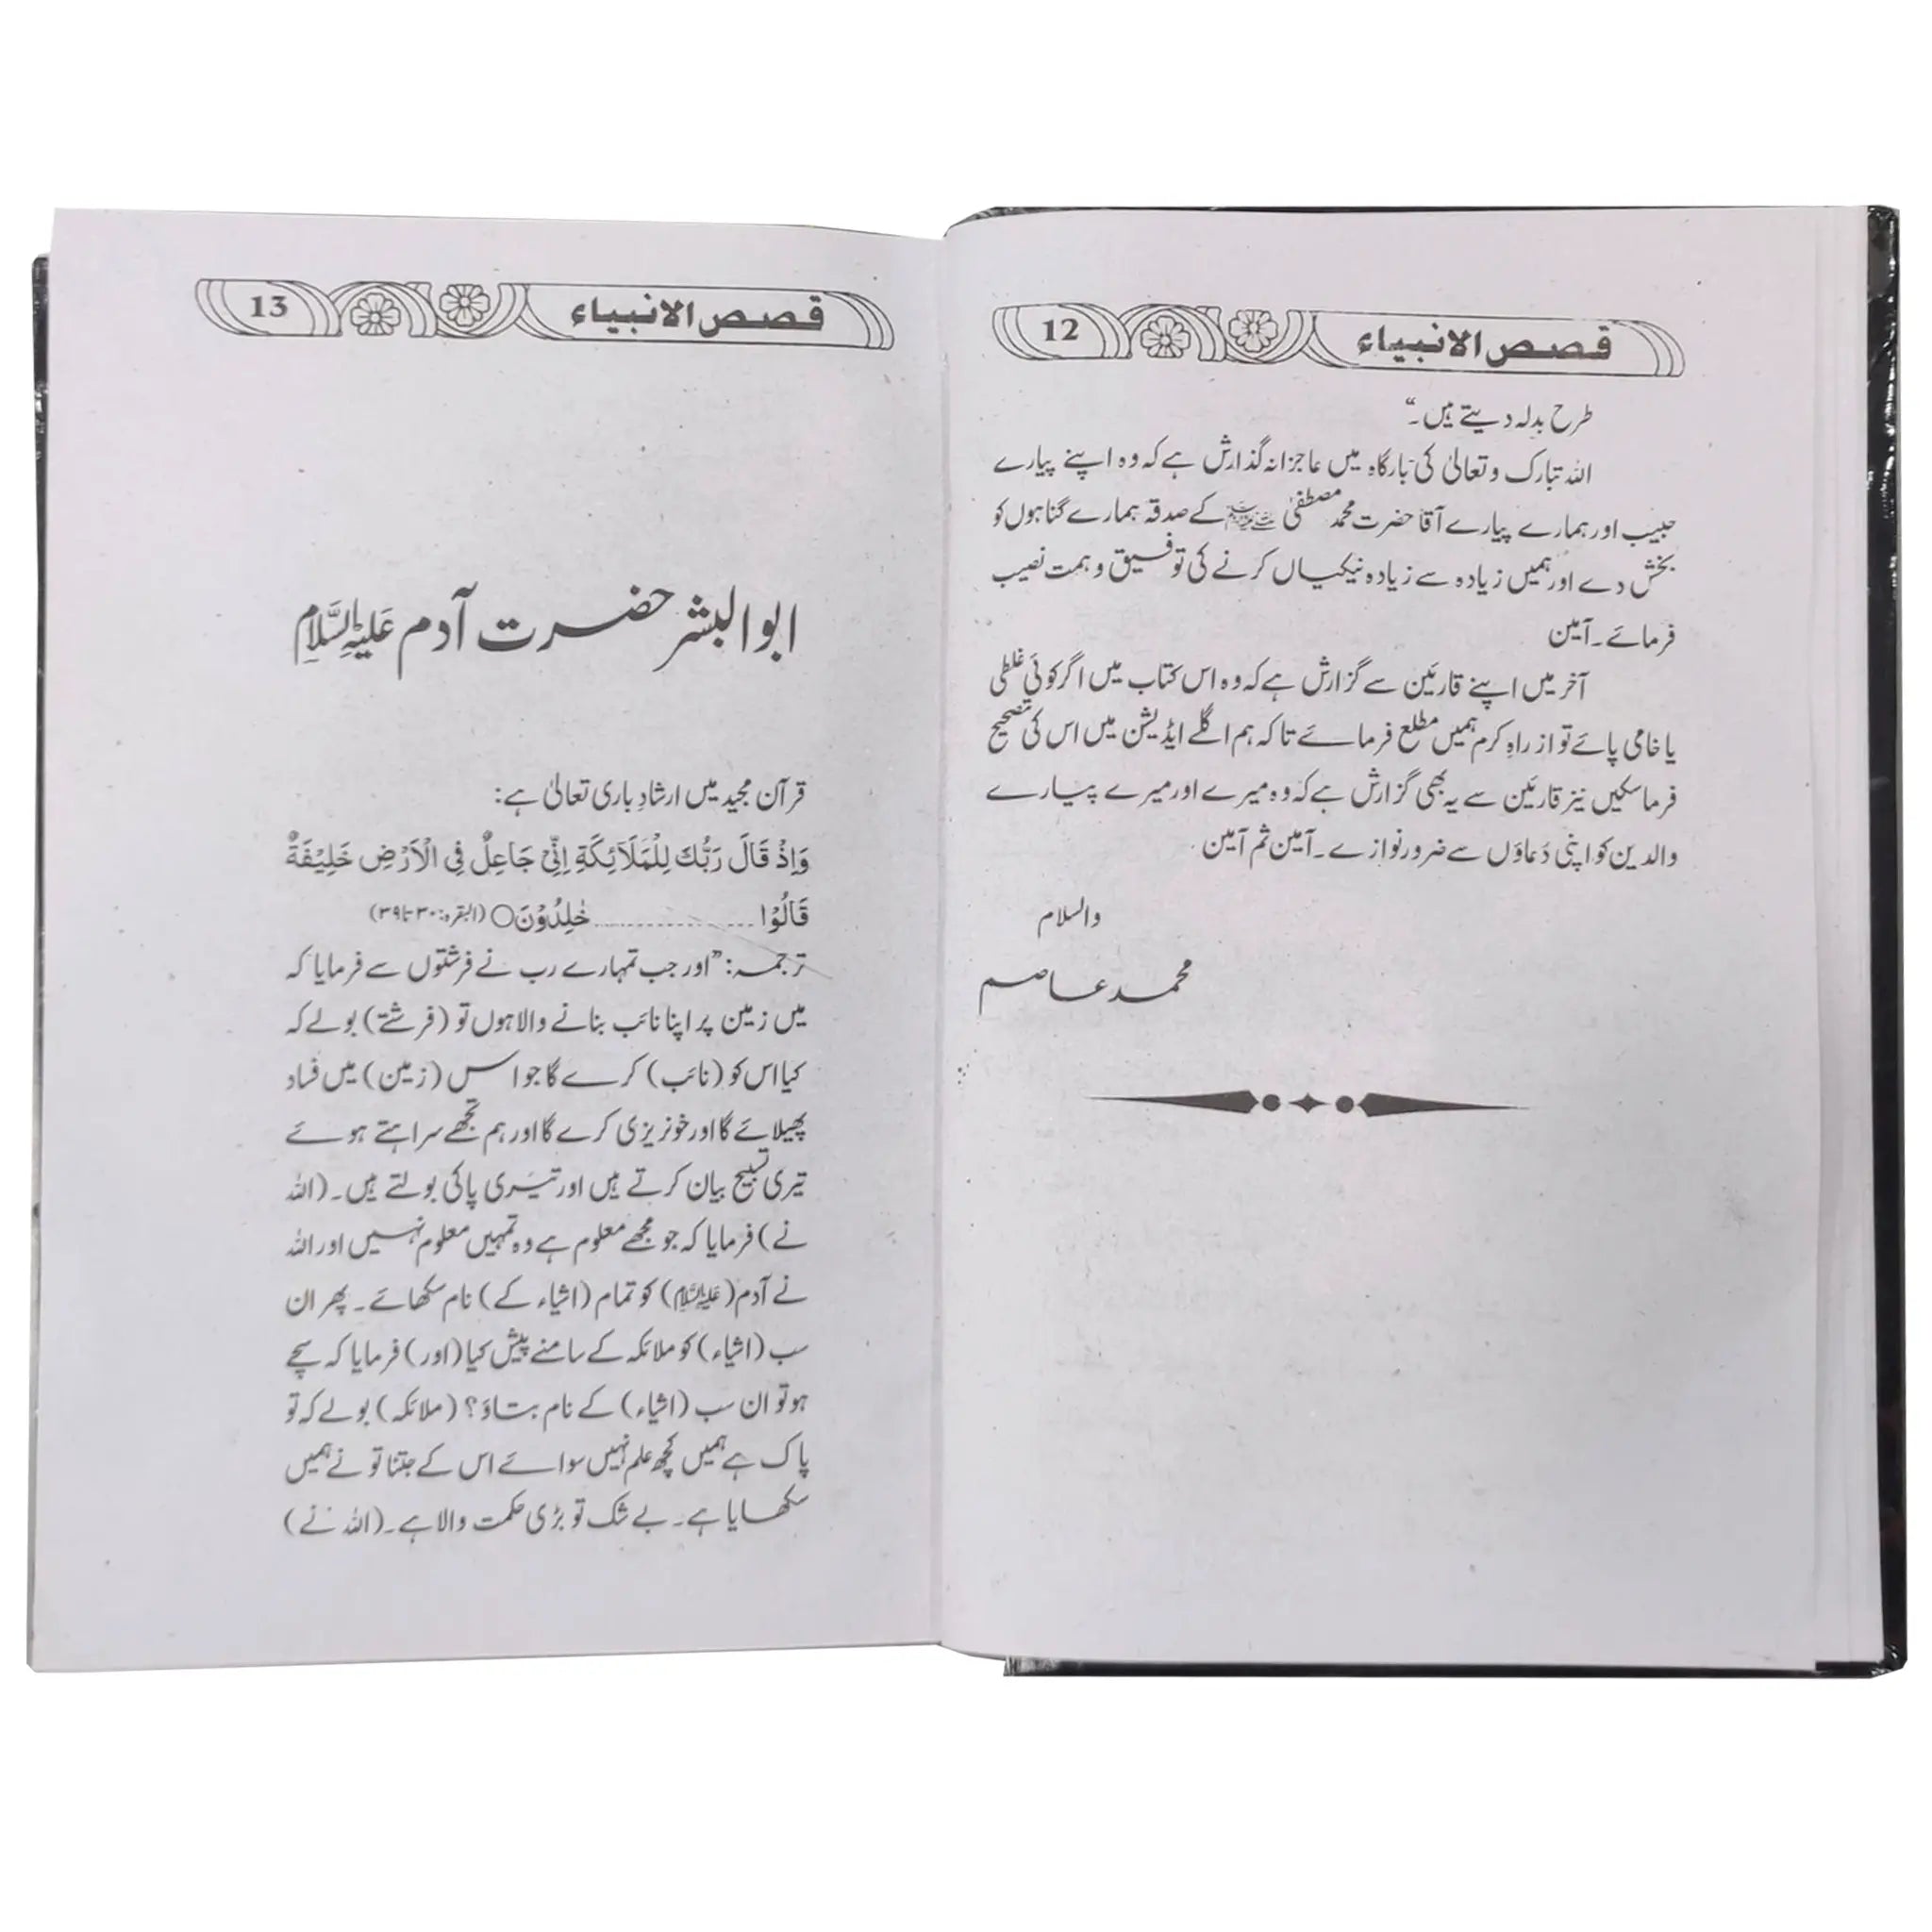 قصص الانبیاء 12
طرح بدلہ دیتے ہیں۔“
اللہ تبارک وتعالیٰ کی بارگاہ میں عاجزانہ گذارش ہے کہ وہ اپنے پیارے
حبیب اور ہمارے پیارے آقا حضرت محمد مصطفیٰ ﷺ کے صدقہ ہمارے گناہوں کو
بخش دے اور ہمیں زیادہ سے زیادہ نیکیاں کرنے کی توفیق و ہمت نصیب
فرمائے۔ آمین
آخر میں اپنے قارئین سے گزارش ہے کہ وہ اس کتاب میں اگر کوئی غلطی
یا خامی پائے تو از راہِ کرم ہمیں مطلع فرمائے تاکہ ہم اگلے ایڈیشن میں اس کی تصحیح
فرما سکیں نیز قارئین سے یہ بھی گزارش ہے کہ وہ میرے اور میرے پیارے
والدین کو اپنی دُعاؤں سے ضرور نوازے۔ آمین ثم آمین
والسلام
محمد عاصم
قصص الانبیاء 13
ابوالبشر حضرت آدم عَلَیْہِ السَّلَام
قرآن مجید میں ارشادِ باری تعالیٰ ہے:
وَاِذْ قَالَ رَبُّكَ لِلْمَلَآئِكَةِ اِنِّیْ جَاعِلٌ فِی الْاَرْضِ خَلِیْفَةً
قَالُوْا ........................ خٰلِدُوْنَ○ (البقرہ: ۳۰ تا ۳۹)
ترجمہ: ”اور جب تمہارے رب نے فرشتوں سے فرمایا کہ
میں زمین پر اپنا نائب بنانے والا ہوں تو (فرشتے) بولے کہ
کیا اس کو (نائب) کرے گا جو اس (زمین) میں فساد
پھیلائے گا اور خونریزی کرے گا اور ہم تجھے سراہتے ہوئے
تیری تسبیح بیان کرتے ہیں اور تیری پاکی بولتے ہیں۔ (اللہ
نے) فرمایا کہ جو مجھے معلوم ہے وہ تمہیں معلوم نہیں اور اللہ
نے آدم (علیہ السلام) کو تمام (اشیاء کے) نام سکھائے۔ پھر ان
سب (اشیاء) کو ملائکہ کے سامنے پیش کیا (اور) فرمایا کہ سچے
ہو تو ان سب (اشیاء) کے نام بتاؤ؟ (ملائکہ) بولے کہ تو
پاک ہے ہمیں کچھ علم نہیں سوائے اس کے جتنا تو نے ہمیں
سکھایا ہے۔ بے شک تو بڑی حکمت والا ہے۔ (اللہ نے)